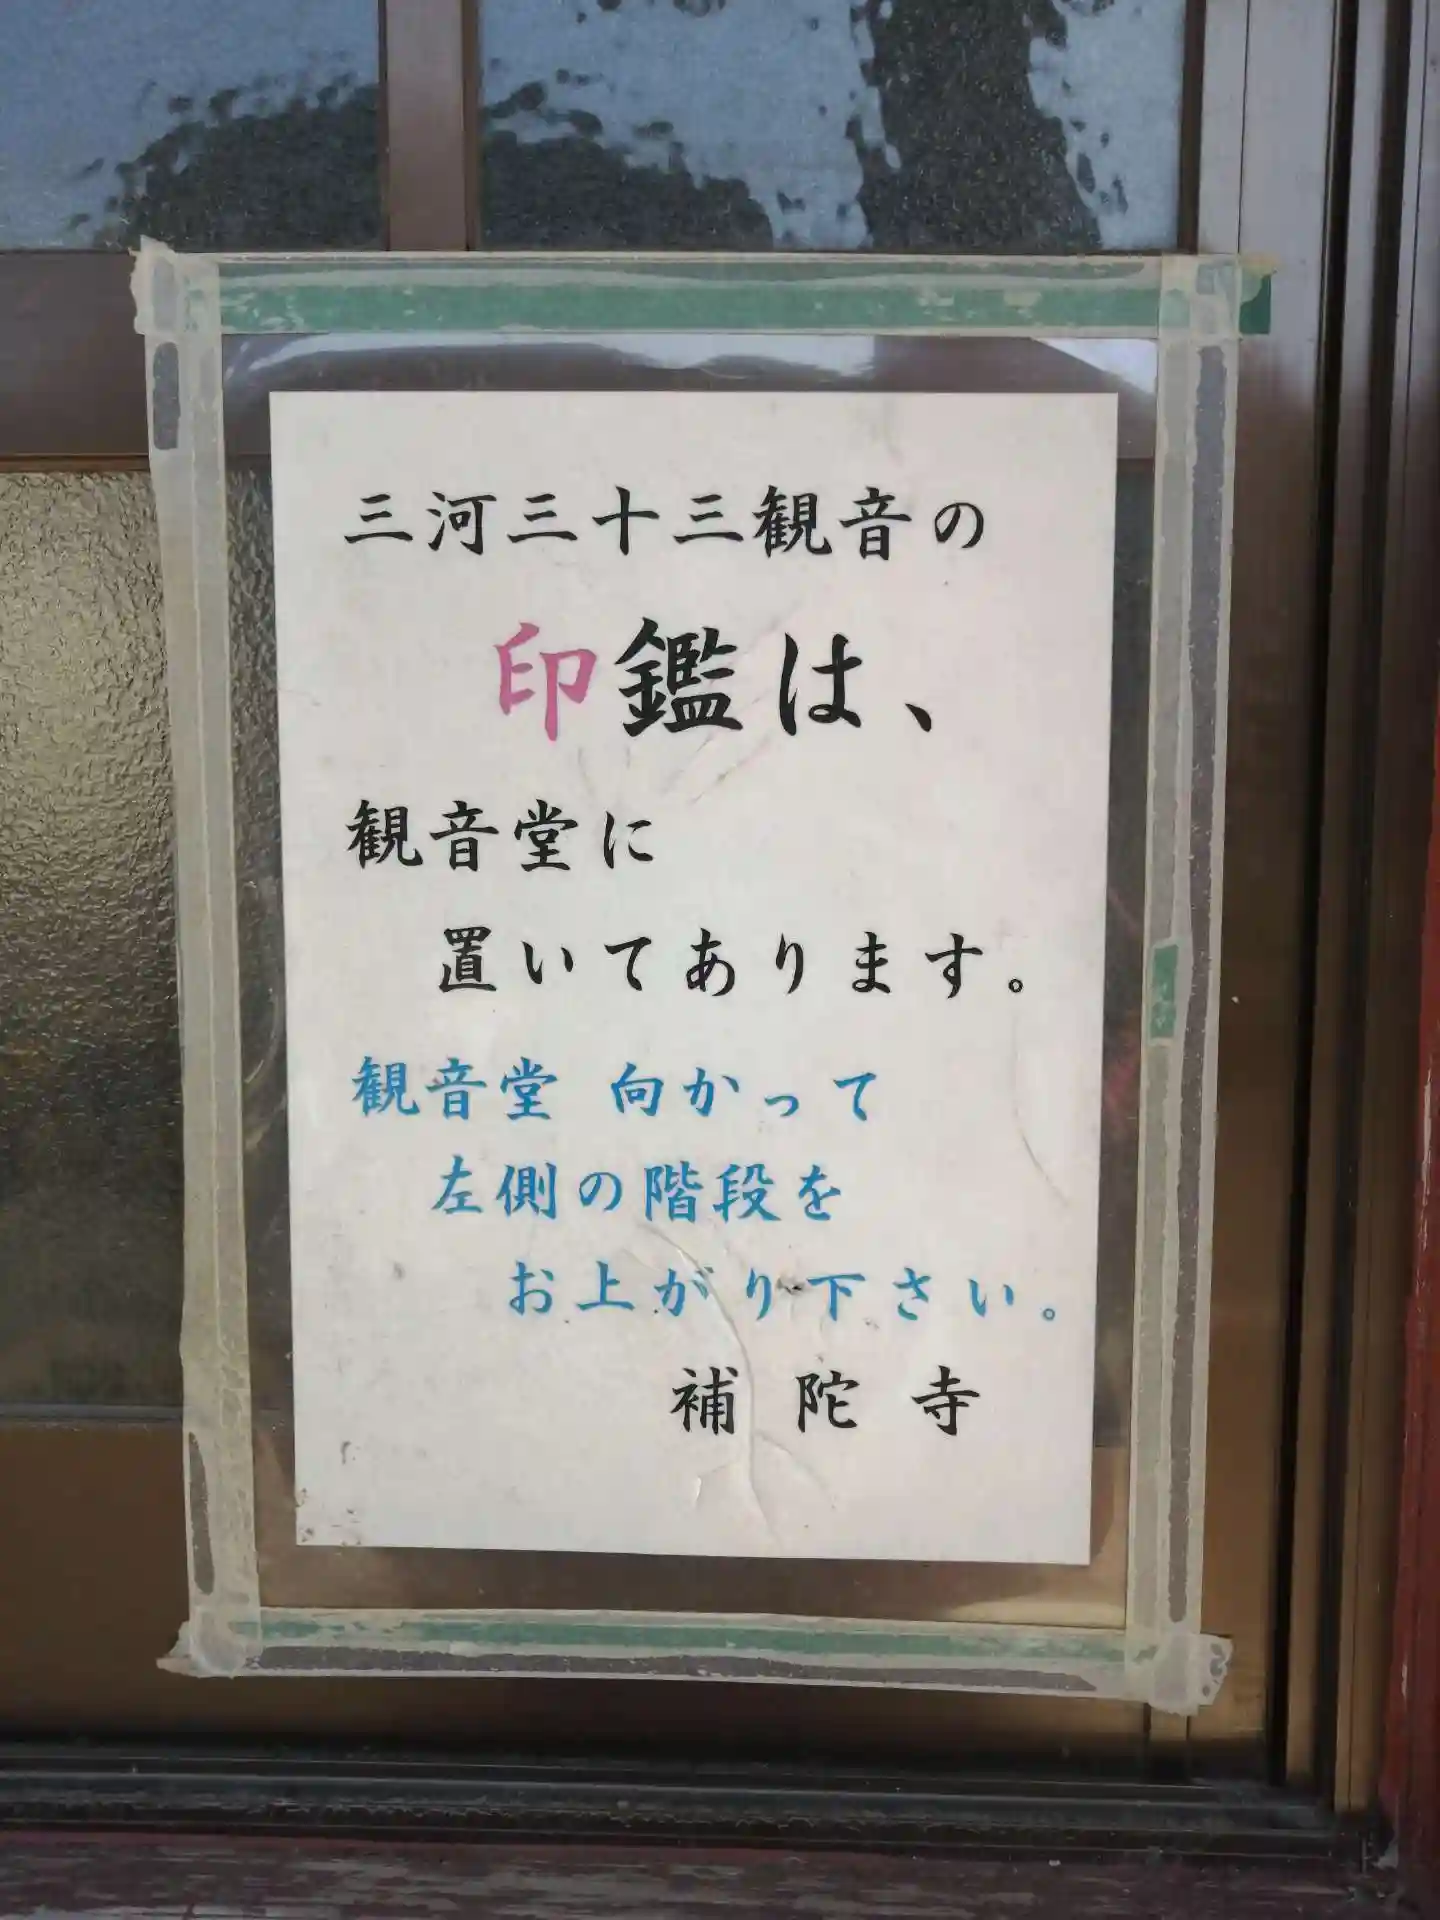 三河三十三観音の
印鑑は、
観音堂に
置いてあります。
観音堂 向かって
左側の階段を
お上がり下さい。
補陀寺